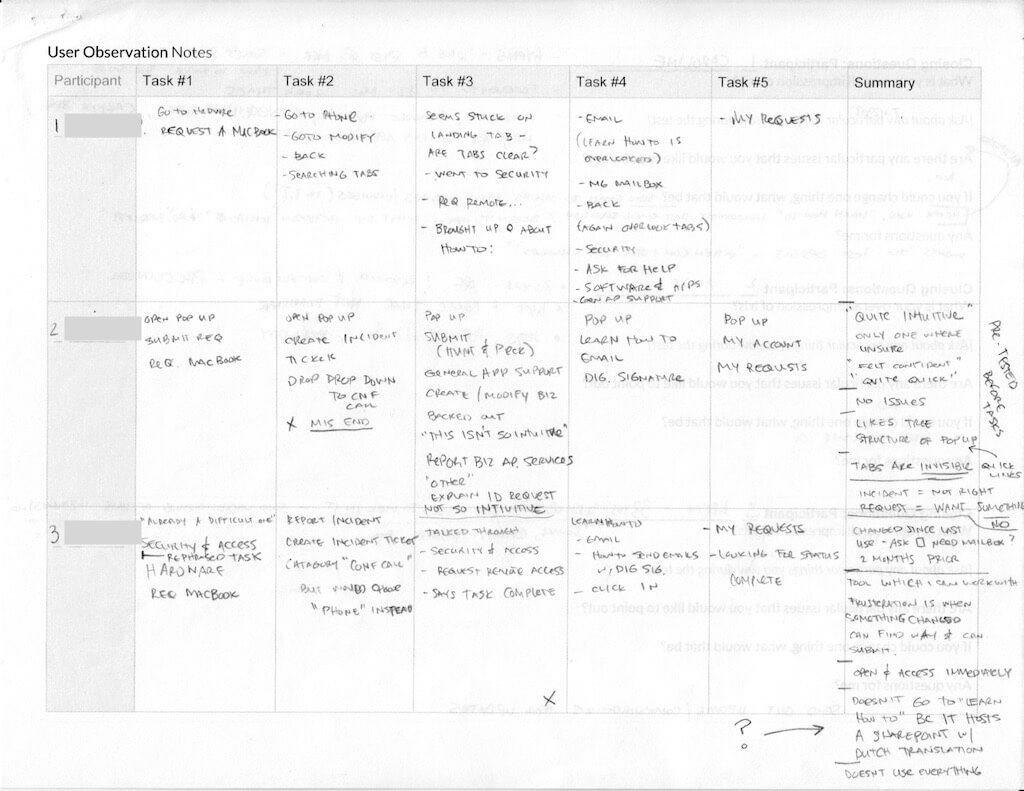 User Observation Notes
Participant Task #1 Task #2 Task #3 Task #4 Task #5 Summary
1
GO TO HRDWRE
REQUEST A MACBOOK
- GO TO PHONE
- GO TO MODIFY
- BACK
- SEARCHING TABS
SEEMS STUCK ON
LANDING TAB -
ARE TABS CLEAR?
- WENT TO SECURITY
- REQ REMOTE...
- BROUGHT UP Q ABOUT
HOW TO:
- EMAIL
(LEARN HOW TO IS
OVERLOOKED)
- MG MAILBOX
- BACK
(AGAIN OVERLOOK TABS)
- SECURITY
- ASK FOR HELP
- SOFTWARE & APPS
- GEN AP SUPPORT
- MY REQUESTS
2
OPEN POP UP
SUBMIT REQ
REQ. MACBOOK
OPEN POP UP
CREATE INCIDENT
TICKET
DROP DROP DOWN
TO CNF
CALL
X MIS END
POP UP
SUBMIT
(HUNT & PECK)
GENERAL APP SUPPORT
CREATE / MODIFY BIZ
BACKED OUT
"THIS ISN'T SO INTUITIVE"
REPORT BIZ AP. SERVICES
"OTHER"
EXPLAIN ID REQUEST
NOT SO INTUITIVE
POP UP
LEARN HOW TO
EMAIL
DIG. SIGNATURE
POP UP
MY ACCOUNT
MY REQUESTS
"QUITE INTUITIVE"
ONLY ONE WHERE
UNSURE
"FELT CONFIDENT"
"QUITE QUICK"
NO ISSUES
LIKES TREE
STRUCTURE OF POP UP
QUICK
LINKS
TABS ARE INVISIBLE
INCIDENT = NOT RIGHT
REQUEST = WANT SOMETHING
NO
PRE-TESTED
BEFORE
TASKS
3
"ALREADY A DIFFICULT ONE"
SECURITY & ACCESS
REPHRASED TASK
HARDWARE
REQ MACBOOK
REPORT INCIDENT
CREATE INCIDENT TICKET
CATAGORY "CONF CALL"
BUT WOULD CHOOSE
"PHONE" INSTEAD
TALKED THROUGH
- SECURITY & ACCESS
- REQUEST REMOTE ACCESS
- SAYS TASK COMPLETE
X
LEARN HOW TO
- EMAIL
- HOW TO SEND EMAILS
W/ DIG SIG.
- CLICK IN
- MY REQUESTS
- LOOKING FOR STATUS
COMPLETE
CHANGED SINCE LAST
USE - ASK NEED MAILBOX?
2 MONTHS PRIOR
TOOL WHICH I CAN WORK WITH
FRUSTERATION IS WHEN
SOMETHING CHANGED
CAN FIND WAY & CAN
SUBMIT.
OPEN & ACCESS IMMEDIATELY
? DOESN'T GO TO "LEARN
HOW TO" BC IT HOSTS
A SHAREPOINT W/
DUTCH TRANSLATION
DOESNT USE EVERYTHING